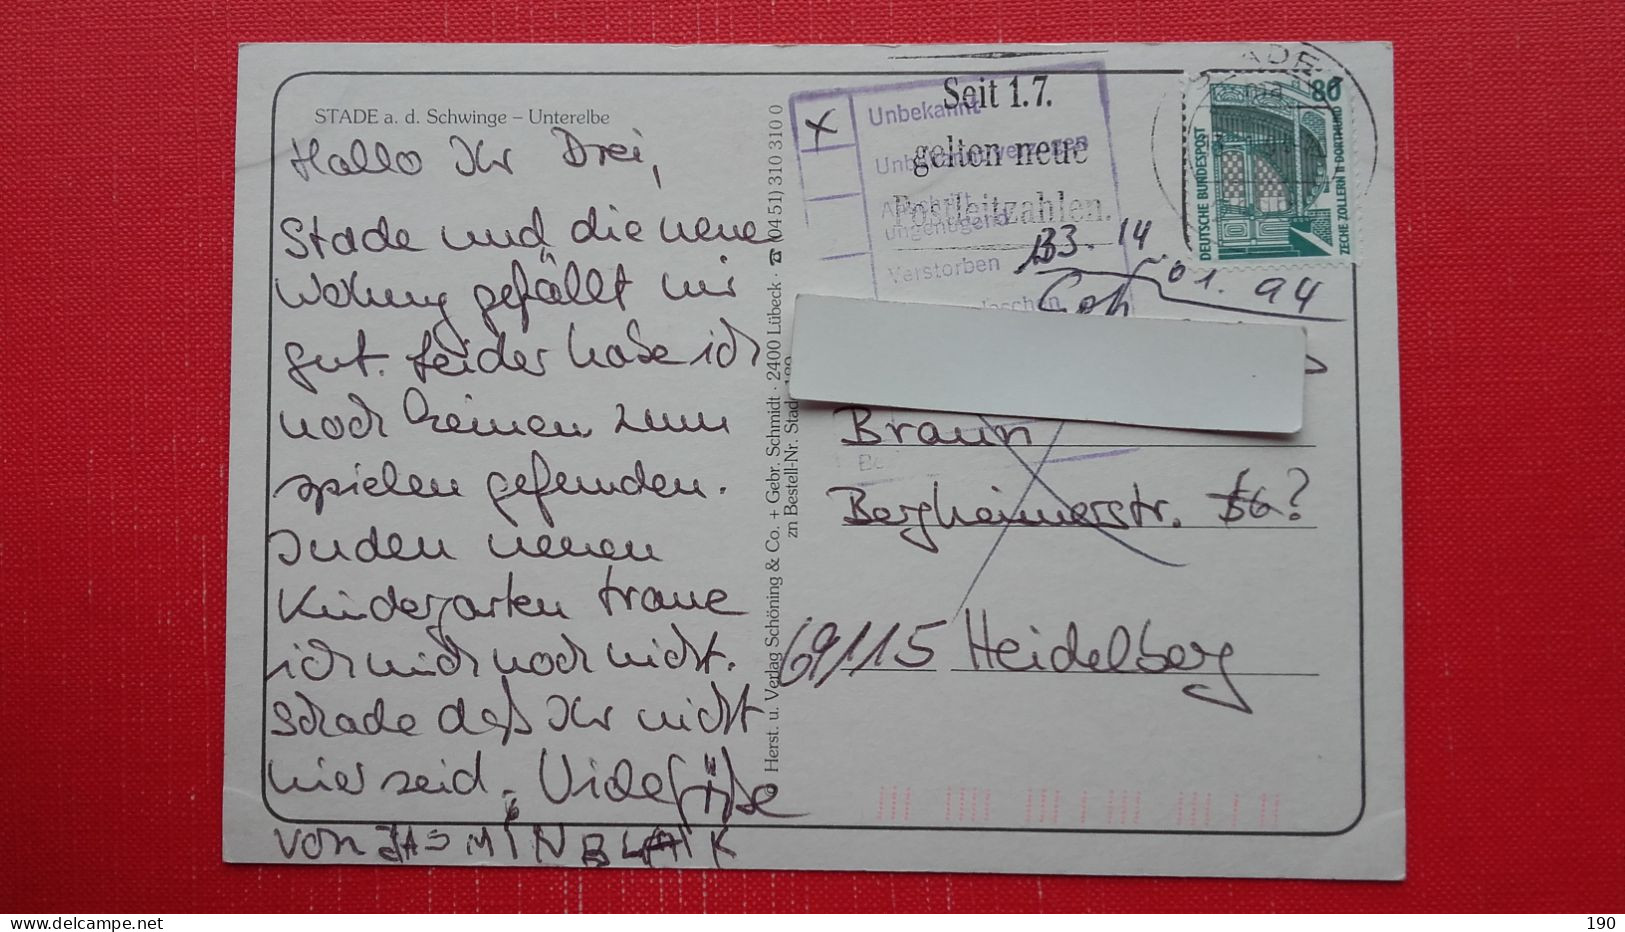 STADE a. d. Schwinge – Unterelbe
Hallo Ihr Drei,
Stade und die neue
Wohnung gefällt mir
gut. Leider habe ich
noch keinen zum
spielen gefunden.
In den neuen
Kindergarten traue
ich mich noch nicht.
Schade daß Ihr nicht
hier seid. Viele Grüße
von JASMIN BLAIK
Herst. u. Verlag Schöning & Co. + Gebr. Schmidt · 2400 Lübeck · ☎ (04 51) 310 310 0
zn Bestell-Nr. Stad
Seit 1.7.
gelten neue
Postleitzahlen.
X
Unbekannt
Unbekannt verzogen
Anschrift
ungenügend
Verstorben
14
01. 94
STADE
80
DEUTSCHE BUNDESPOST
ZECHE ZOLLERN II DORTMUND
Braun
Bergheimerstr. 56?
69115 Heidelberg
190
delcampe.net